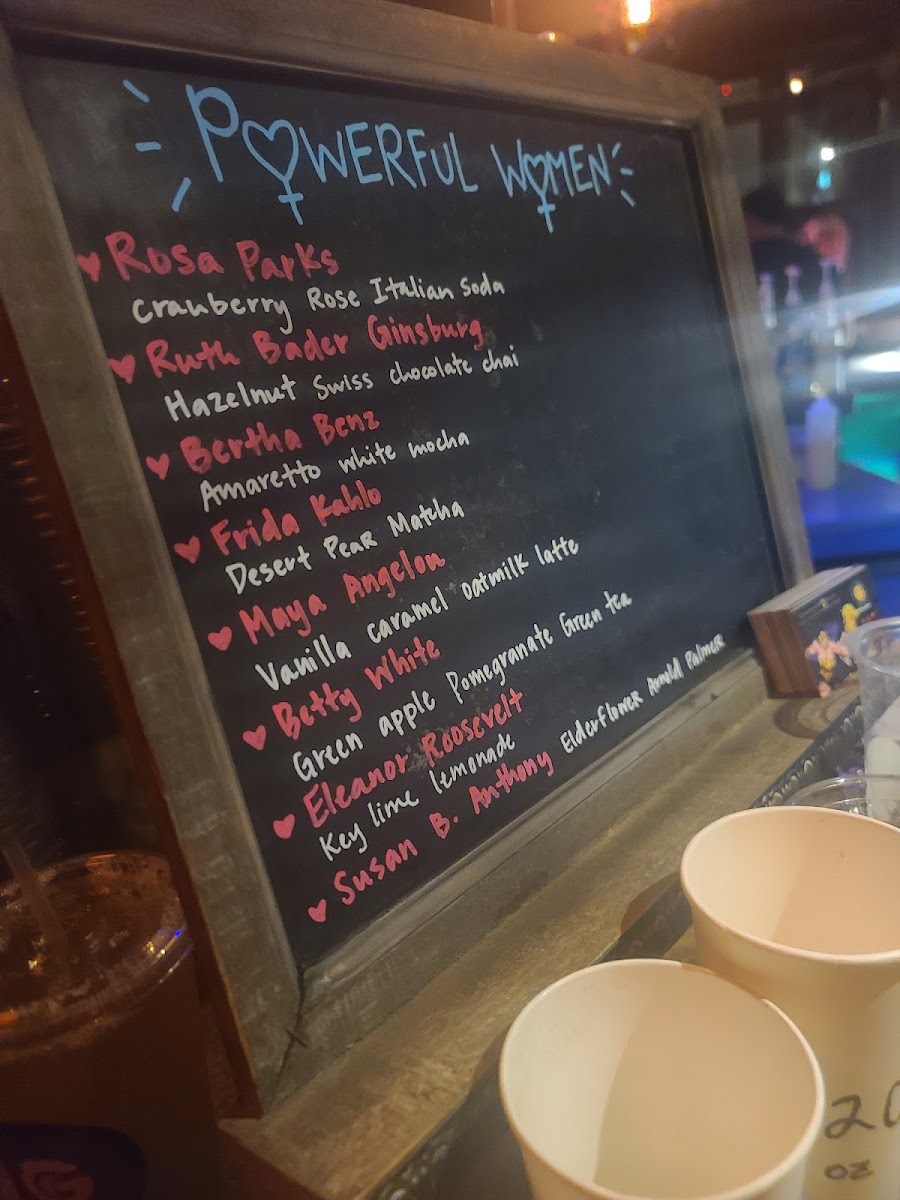 POWERFUL WOMEN
Rosa Parks
Cranberry Rose Italian Soda
Ruth Bader Ginsburg
Hazelnut Swiss chocolate chai
Bertha Benz
Amaretto white mocha
Frida Kahlo
Desert Pear Matcha
Maya Angelou
Vanilla caramel oatmilk latte
Betty White
Green apple Pomegranate Green tea
Eleanor Roosevelt
Key lime lemonade
Susan B. Anthony Elderflower Arnold Palmer
oz